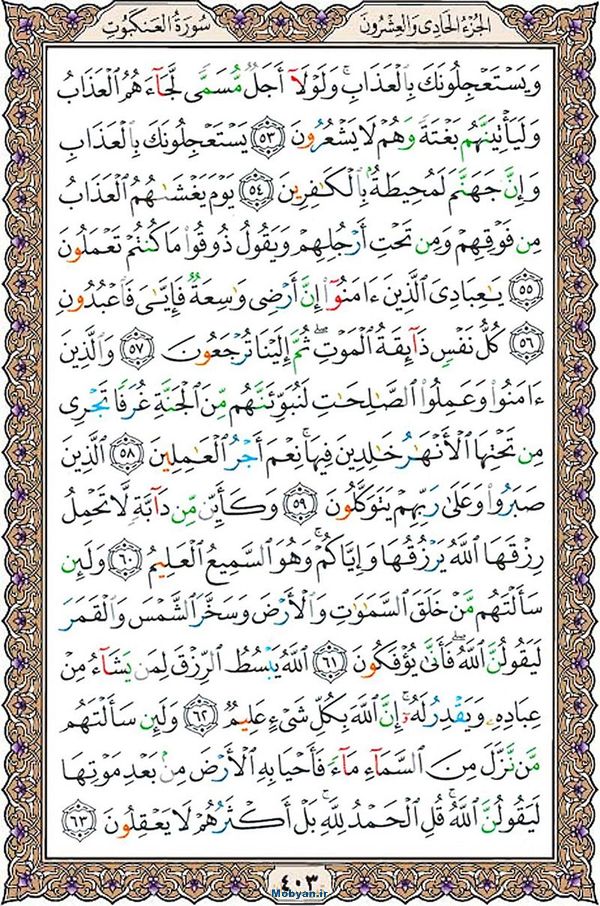 الجُزءُ الحَادِی وَالعِشرُونَ
سُورَةُ العَنكَبُوتِ
وَيَسْتَعْجِلُونَكَ بِالْعَذَابِ ۚ وَلَوْلَآ أَجَلٌ مُّسَمًّى لَّجَآءَهُمُ الْعَذَابُ
وَلَيَأْتِيَنَّهُم بَغْتَةً وَهُمْ لَا يَشْعُرُونَ ۝٥٣ يَسْتَعْجِلُونَكَ بِالْعَذَابِ
وَإِنَّ جَهَنَّمَ لَمُحِيطَةٌۢ بِالْكَٰفِرِينَ ۝٥٤ يَوْمَ يَغْشَىٰهُمُ الْعَذَابُ
مِن فَوْقِهِمْ وَمِن تَحْتِ أَرْجُلِهِمْ وَيَقُولُ ذُوقُوا مَا كُنتُمْ تَعْمَلُونَ
۝٥٥ يَٰعِبَادِىَ الَّذِينَ ءَامَنُوٓا إِنَّ أَرْضِى وَٰسِعَةٌ فَإِيَّٰىَ فَاعْبُدُونِ
۝٥٦ كُلُّ نَفْسٍ ذَآئِقَةُ الْمَوْتِ ۖ ثُمَّ إِلَيْنَا تُرْجَعُونَ ۝٥٧ وَالَّذِينَ
ءَامَنُوا وَعَمِلُوا الصَّٰلِحَٰتِ لَنُبَوِّئَنَّهُم مِّنَ الْجَنَّةِ غُرَفًا تَجْرِى
مِن تَحْتِهَا الْأَنْهَٰرُ خَٰلِدِينَ فِيهَا ۚ نِعْمَ أَجْرُ الْعَٰمِلِينَ ۝٥٨ الَّذِينَ
صَبَرُوا وَعَلَىٰ رَبِّهِمْ يَتَوَكَّلُونَ ۝٥٩ وَكَأَيِّن مِّن دَآبَّةٍ لَّا تَحْمِلُ
رِزْقَهَا اللَّهُ يَرْزُقُهَا وَإِيَّاكُمْ ۚ وَهُوَ السَّمِيعُ الْعَلِيمُ ۝٦٠ وَلَئِن
سَأَلْتَهُم مَّنْ خَلَقَ السَّمَٰوَٰتِ وَالْأَرْضَ وَسَخَّرَ الشَّمْسَ وَالْقَمَرَ
لَيَقُولُنَّ اللَّهُ ۖ فَأَنَّىٰ يُؤْفَكُونَ ۝٦١ اللَّهُ يَبْسُطُ الرِّزْقَ لِمَن يَشَآءُ مِنْ
عِبَادِهِۦ وَيَقْدِرُ لَهُۥٓ ۚ إِنَّ اللَّهَ بِكُلِّ شَىْءٍ عَلِيمٌ ۝٦٢ وَلَئِن سَأَلْتَهُم
مَّن نَّزَّلَ مِنَ السَّمَآءِ مَآءً فَأَحْيَا بِهِ الْأَرْضَ مِنۢ بَعْدِ مَوْتِهَا
لَيَقُولُنَّ اللَّهُ ۚ قُلِ الْحَمْدُ لِلَّهِ ۚ بَلْ أَكْثَرُهُمْ لَا يَعْقِلُونَ ۝٦٣
٤٠٣
Mobyan.ir